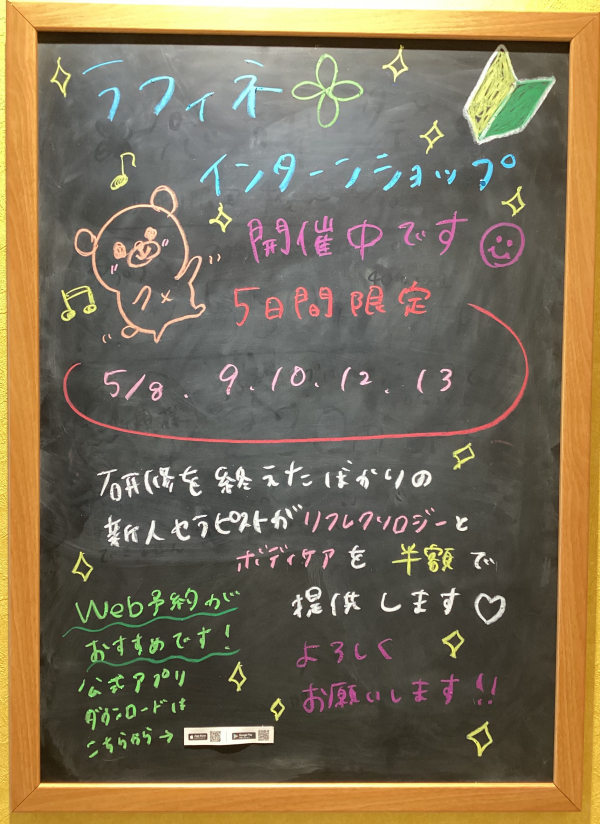 ラフィネ
インターンショップ
開催中です
5日間限定
5/8. 9. 10. 12. 13
研修を終えたばかりの
新人セラピストがリフレクソロジーと
ボディケアを半額で
提供します♡
よろしく
お願いします!!
Web予約が
おすすめです!
公式アプリ
ダウンロードは
こちらから→